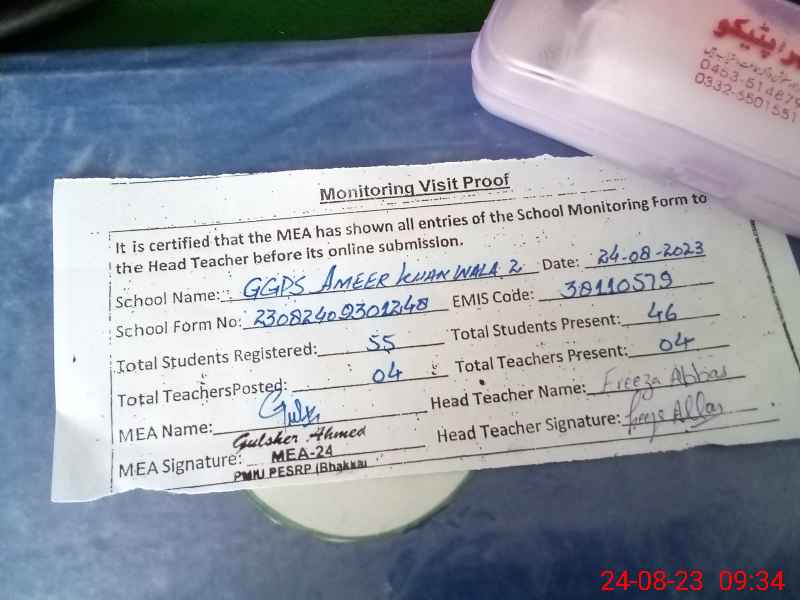 پٹیکو
0453-51487
0332-5501551
Monitoring Visit Proof
It is certified that the MEA has shown all entries of the School Monitoring Form to
the Head Teacher before its online submission.
School Name: GGPS AMEER KHAN WALA 2 Date: 24-08-2023
School Form No: 23082409301248 EMIS Code: 38110579
Total Students Registered: 55 Total Students Present: 46
Total TeachersPosted: 04 Total Teachers Present: 04
MEA Name: Head Teacher Name: Freeza Abbas
MEA Signature: Gulsher Ahmed Head Teacher Signature:
MEA-24
PMIU PESRP (Bhakkar)
24-08-23 09:34